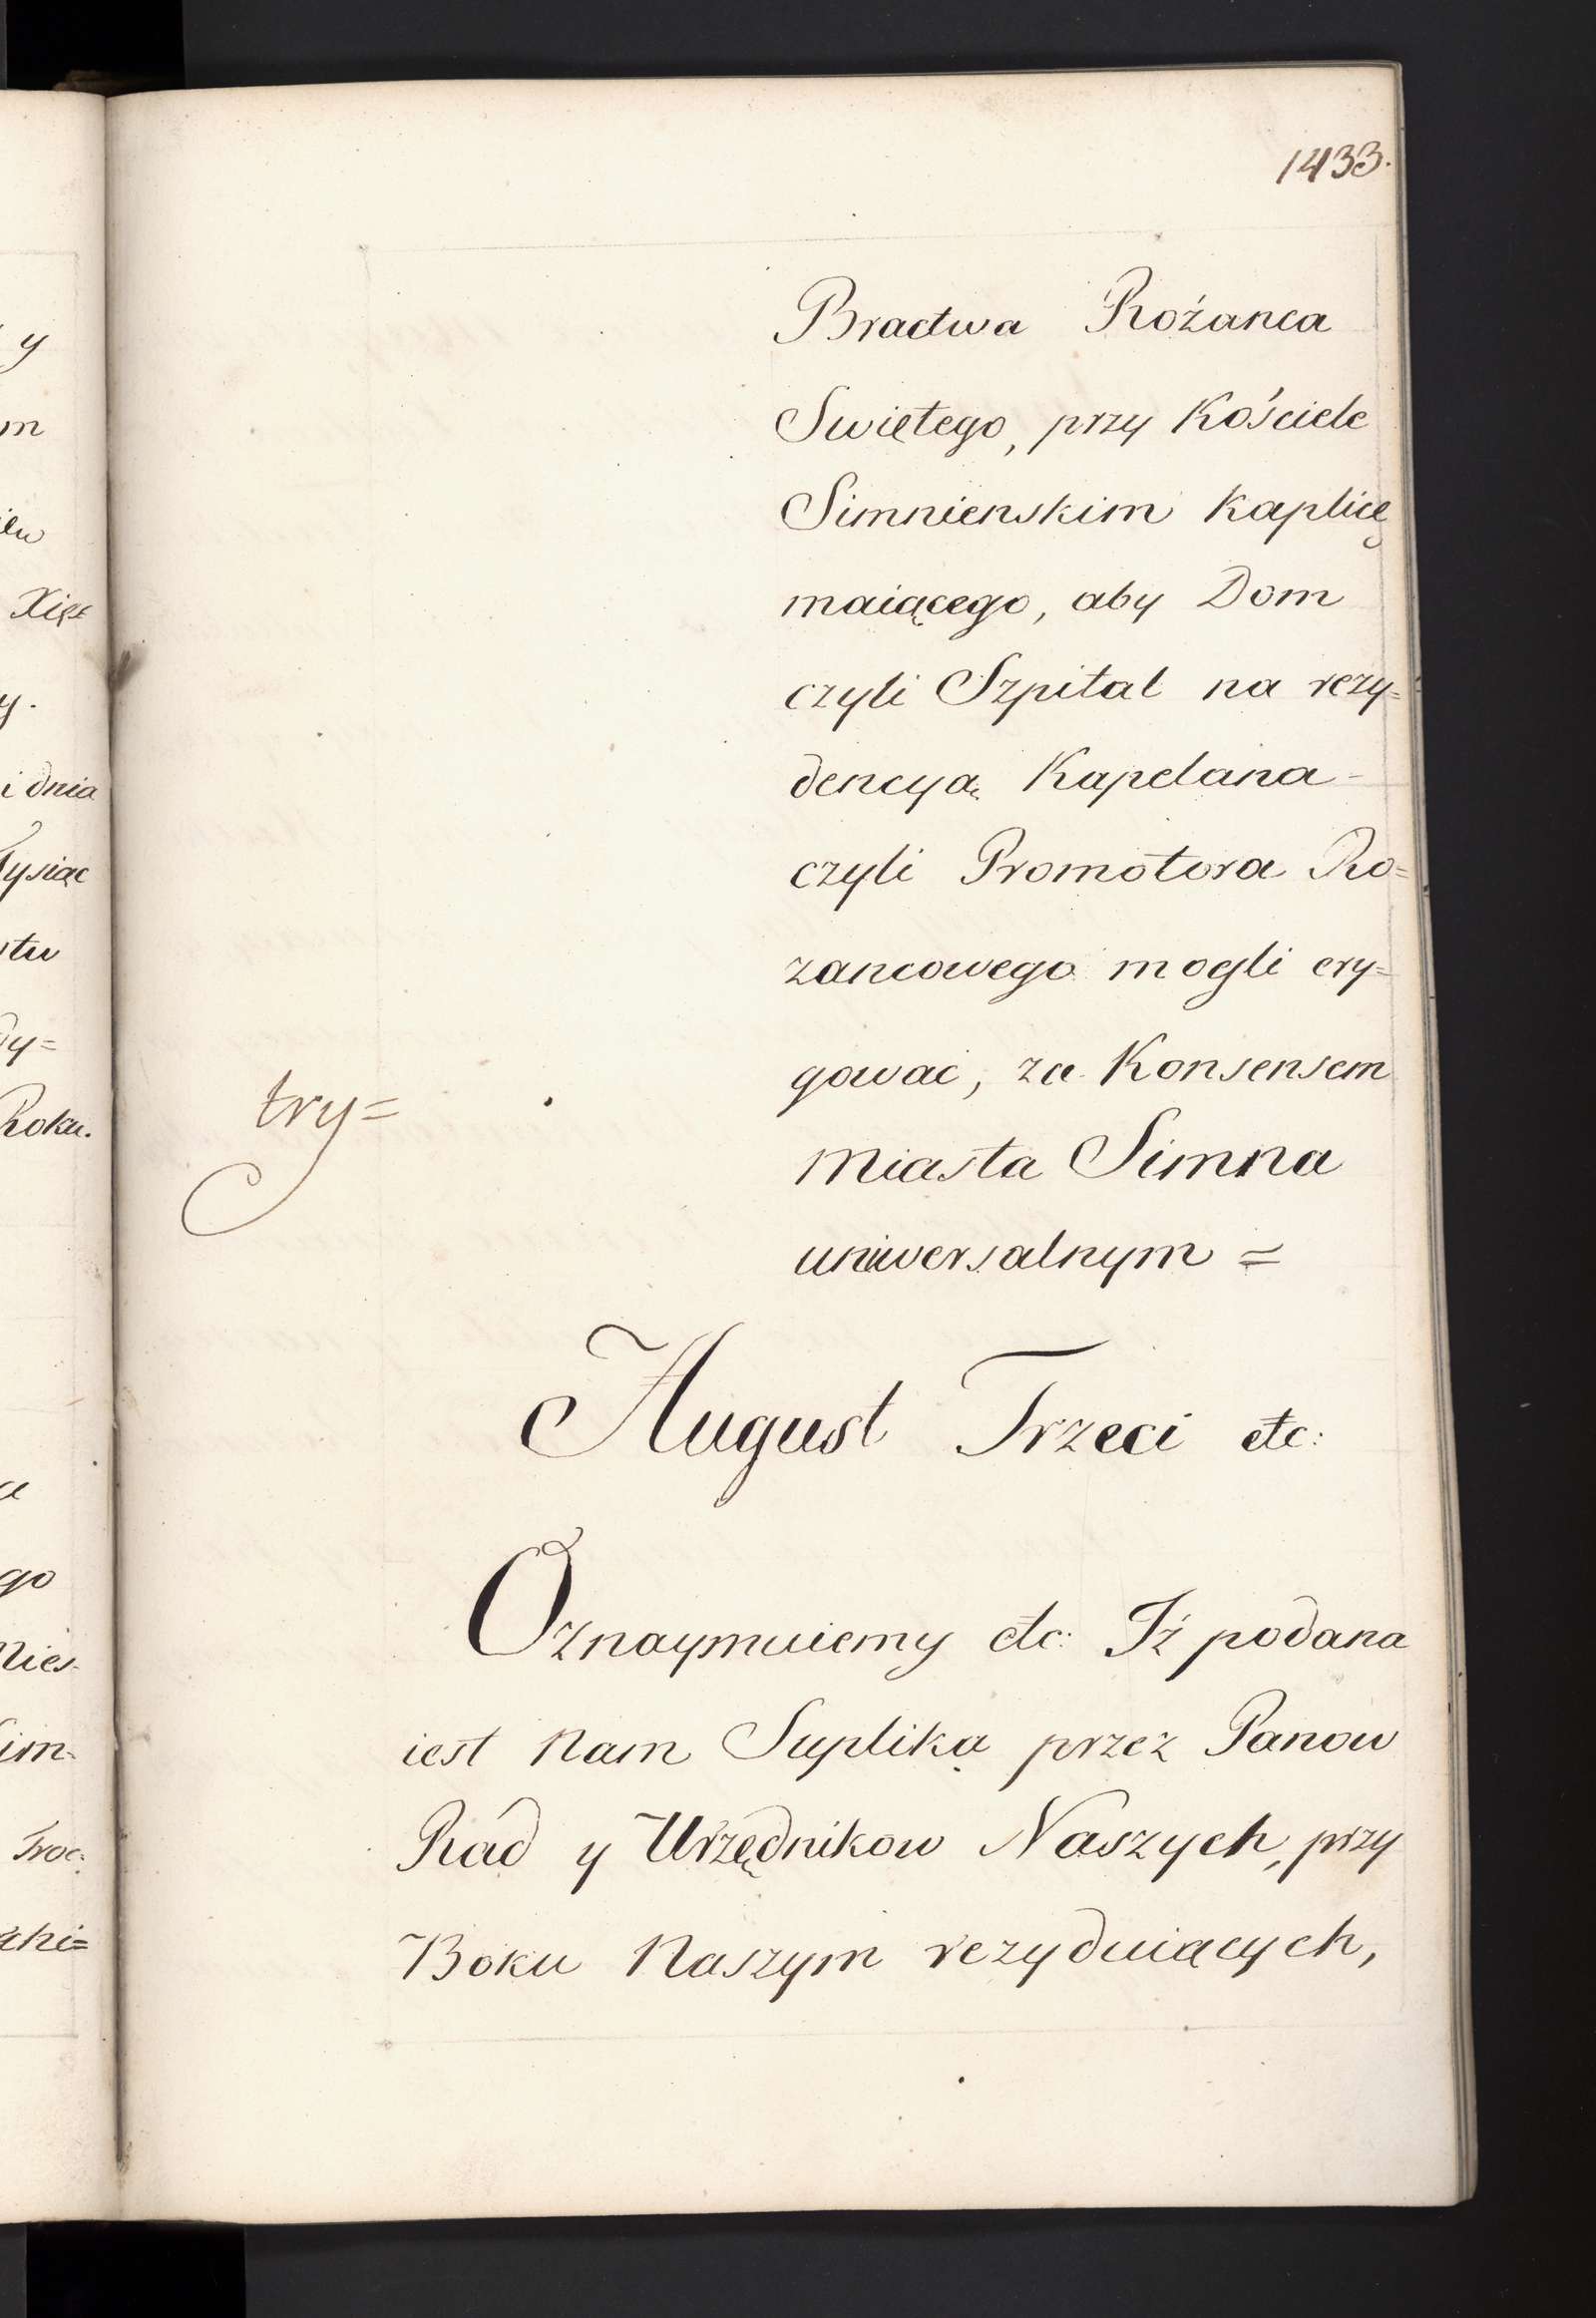 1433.
Bractwa Rożanca
Swiętego, przy Kościele
Simnienskim Kaplicę
maiącego, aby Dom
czyli Szpital na rezy=
dencyą Kapelana-
czyli Promotora Ro=
zancowego mogli ery=
gowac, za Konsensem
try=
Miasta Simna
uniwersalnym =
August Trzeci etc:
Oznaymuiemy etc: Iż podana
iest Nam Suplika przez Panow
Rad y Urzędnikow Naszych, przy
Boku Naszym rezyduiących,
y
m
Xięż
y.
i dnia
Tysiąc
stu
dy=
Roku.
go
Nies-
Sim-
Troc: